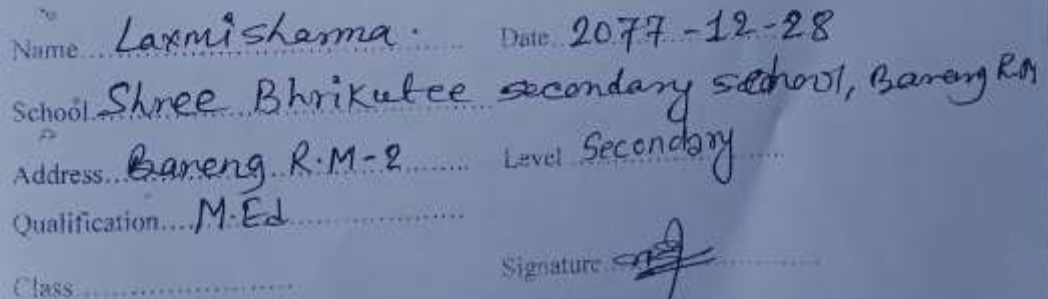 Name... Laxmi sharma. Date. 2077-12-28
School. Shree Bhrikutee secondary school, Bareng R.M
Address... Bareng R.M-2 Level Secondary
Qualification.... M.Ed
Signature
Class